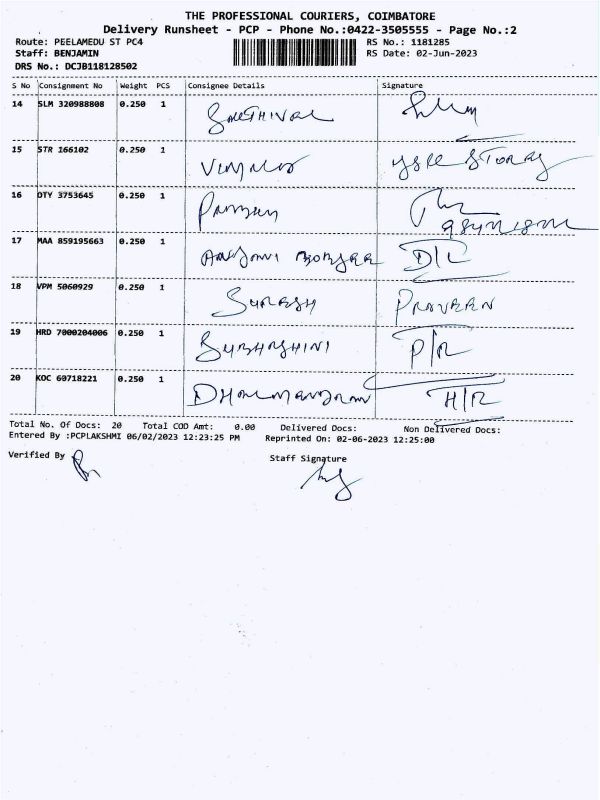 THE PROFESSIONAL COURIERS, COIMBATORE
Delivery Runsheet - PCP - Phone No.:0422-3505555 - Page No.:2
Route: PEELAMEDU ST PC4 RS No.: 1181285
Staff: BENJAMIN RS Date: 02-Jun-2023
DRS No.: DCJB118128502
S No Consignment No Weight PCS Consignee Details Signature
14 SLM 320988808 0.250 1
15 STR 166102 0.250 1
16 OTY 3753645 0.250 1
17 MAA 859195663 0.250 1 D/L
18 VPM 5060929 0.250 1 SURESH PRAVEEN
19 HRD 7000204006 0.250 1 SUBHASHINI P/R
20 KOC 60718221 0.250 1 H/R
Total No. Of Docs: 20 Total COD Amt: 0.00 Delivered Docs: Non Delivered Docs:
Entered By :PCPLAKSHMI 06/02/2023 12:23:25 PM Reprinted On: 02-06-2023 12:25:00
Verified By Staff Signature